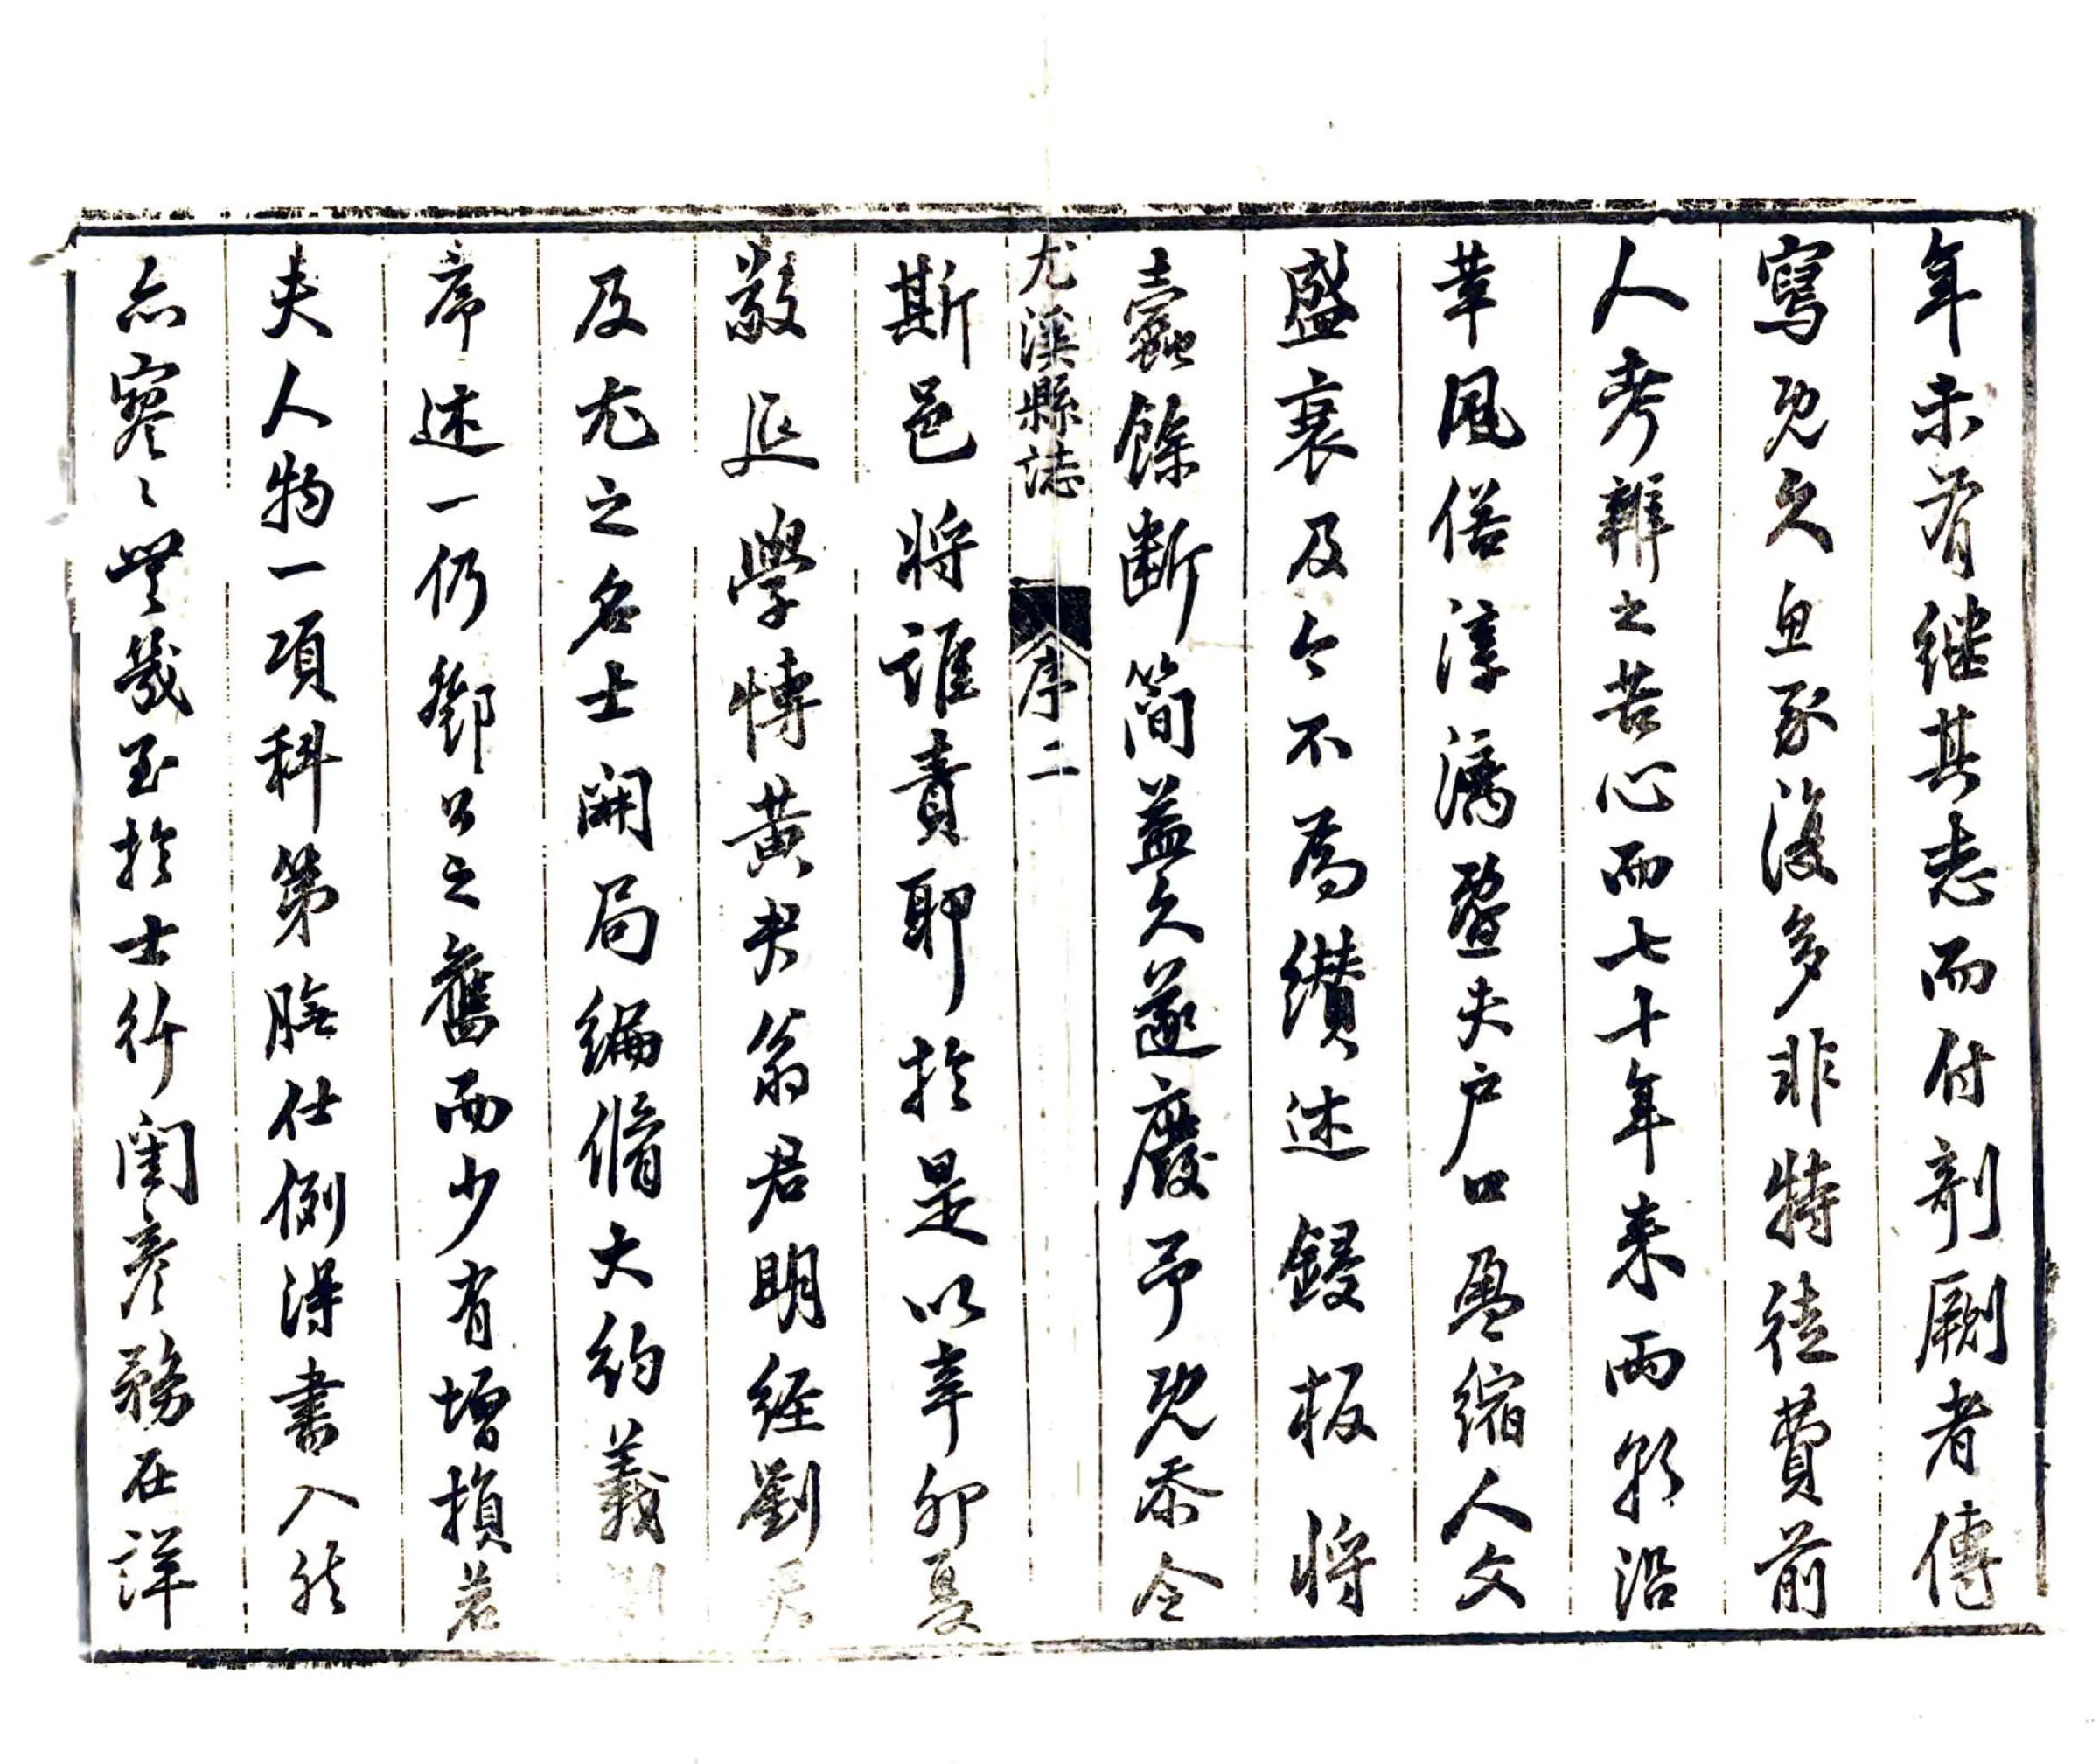 年未有繼其志而付剞劂者傳
寫既久魚豕浸多非特徒費前
人考辨之苦心而七十年来兩朝沿
革風俗淳漓暨夫户口盈縮人文
盛衰及今不為纘述鋟板將
蠹餘斷簡益久遂廢予既忝令
尤溪縣誌
序二
斯邑將誰責耶於是以辛卯夏
敦延學博黄夫翁君明經劉君
及尤之名士開局編脩大約義
序述一仍鄧公之舊而少有增損若
夫人物一項科第膴仕例得書入然
亦寥〻無幾至於士行閨彦務在詳